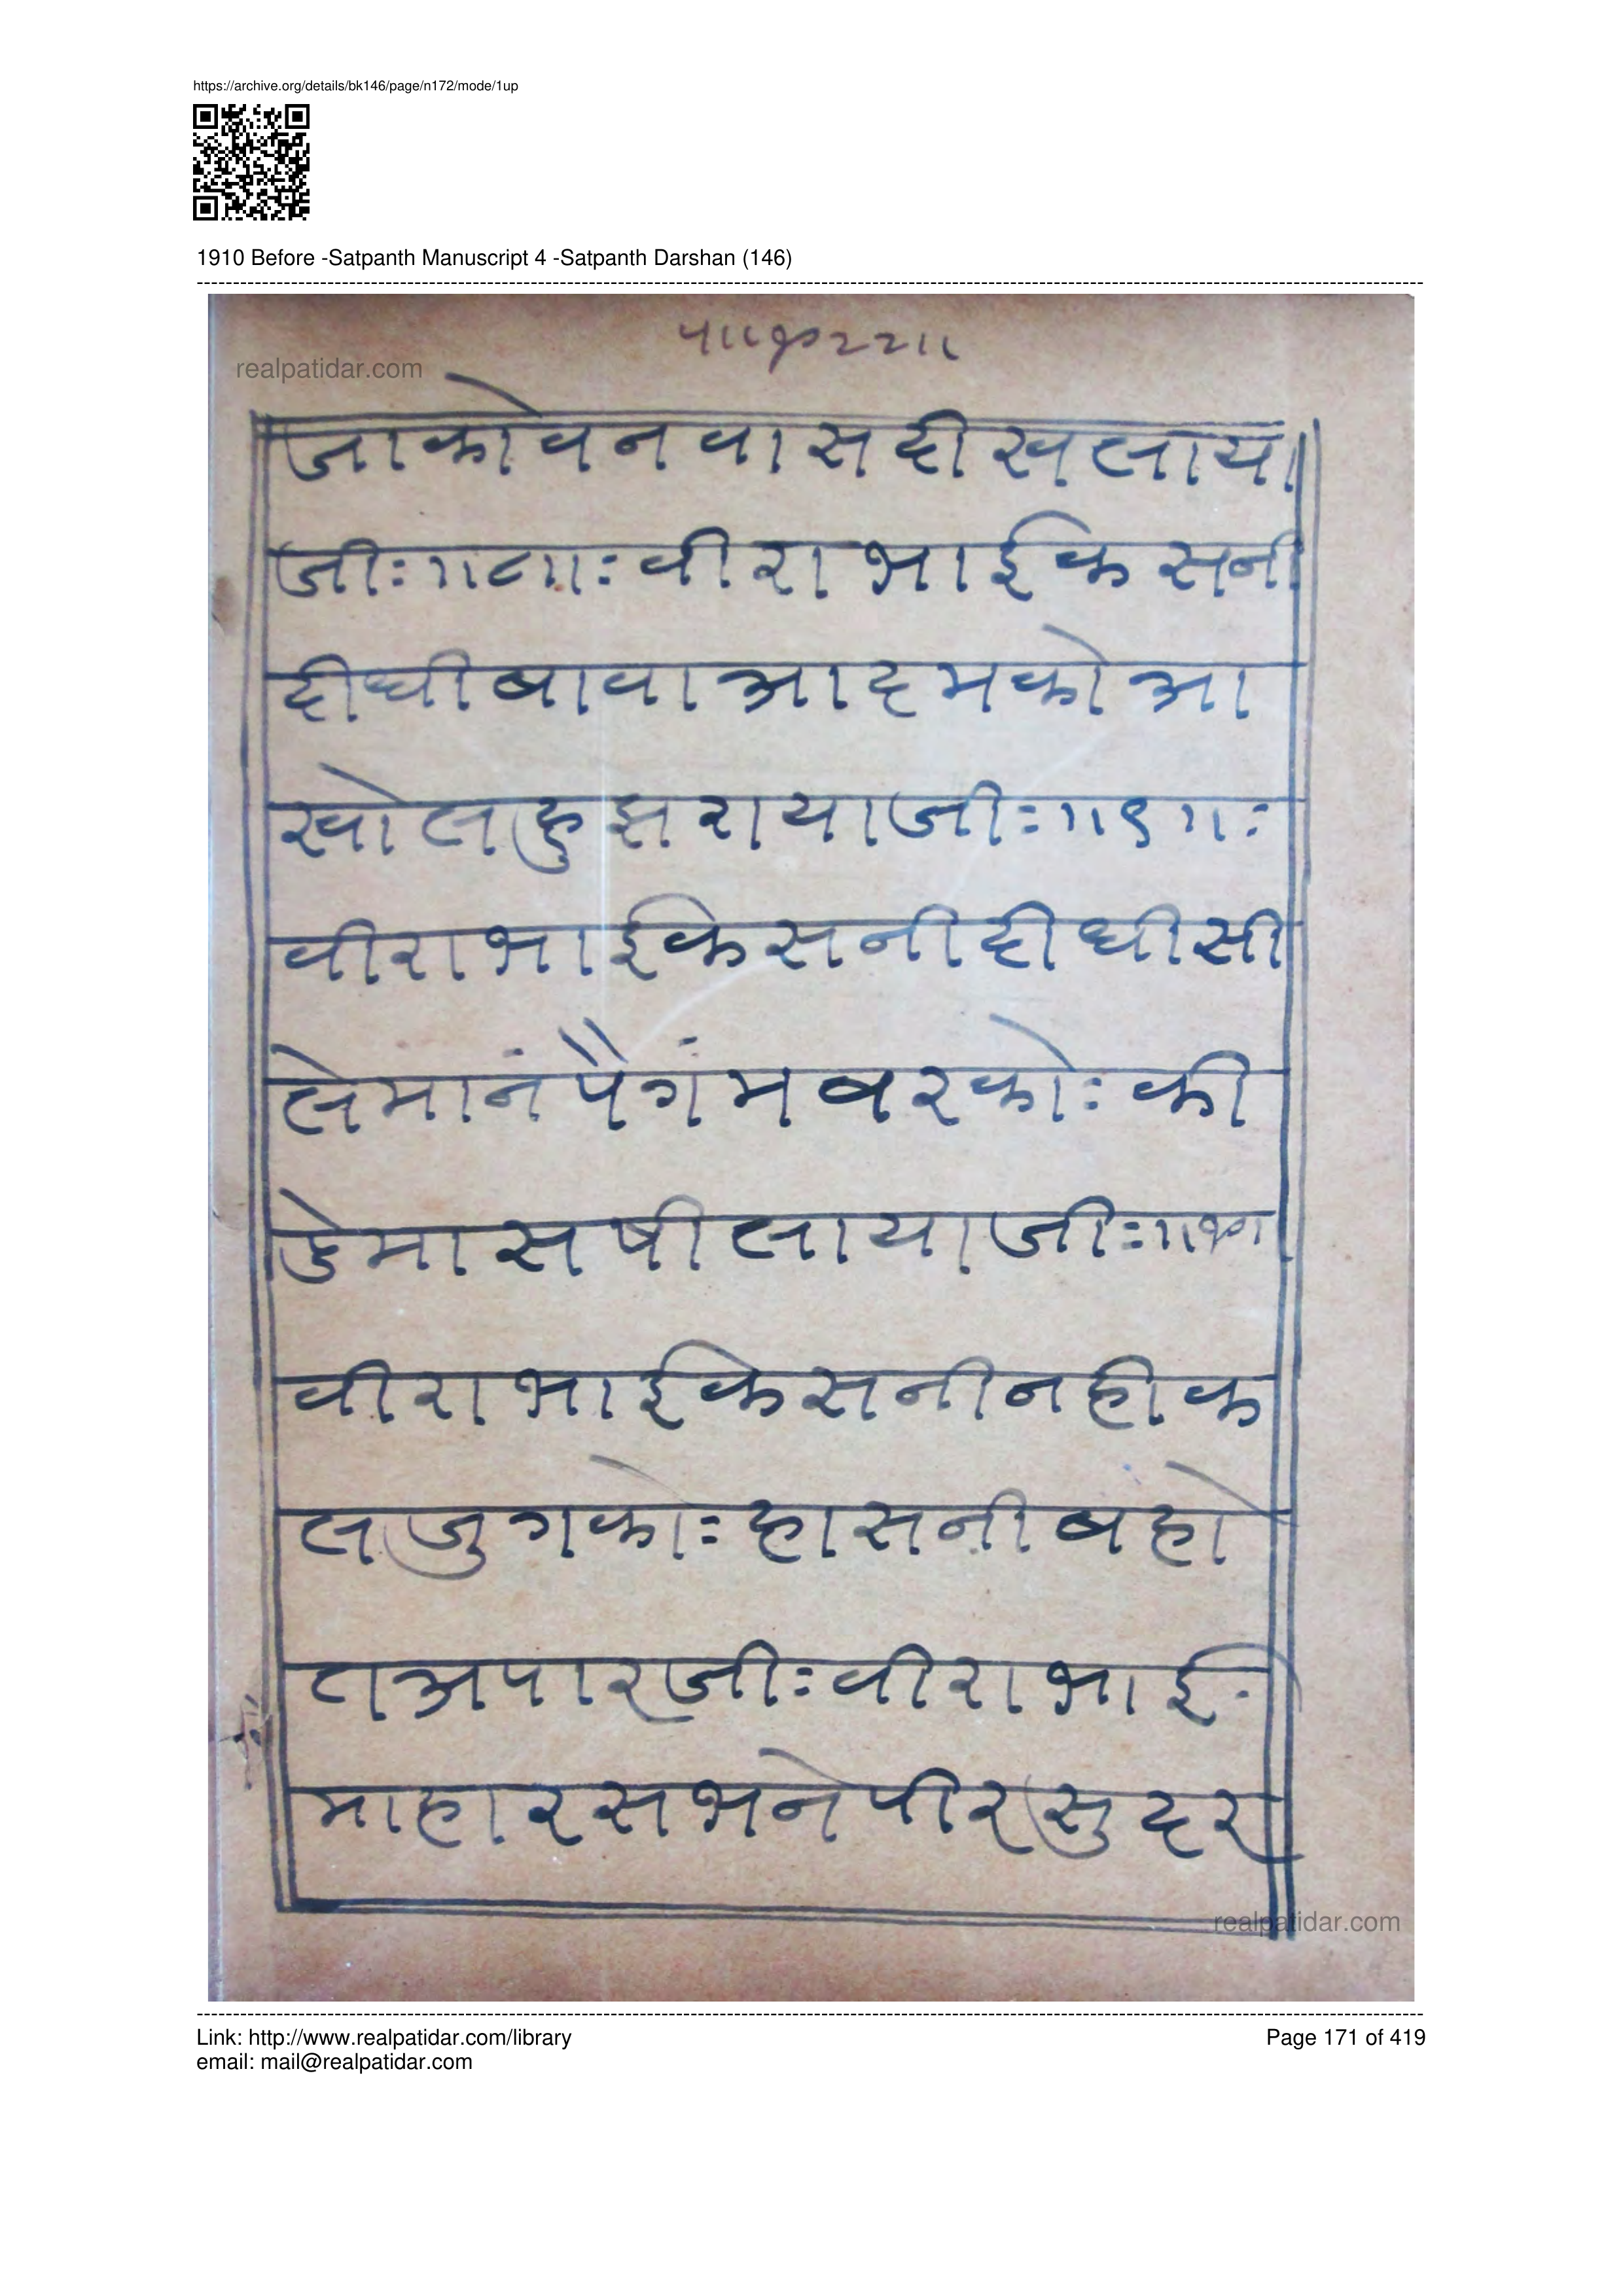 https://archive.org/details/bk146/page/n172/mode/1up
1910 Before -Satpanth Manuscript 4 -Satpanth Darshan (146)
realpatidar.com
जाकोवनवासदीखलाया
जीः॥८॥ःवीराभाईकसनी
दीधीबावाआदमकोआ
खोल
रायाजीः॥९॥ः
वीराभाईकेसनीदीधीसी
लेमानंपैगंमबरकोः की
डेमासषीलायाजीः
वीराभाईकेसनीनहीक
लजुगकोः हासनीबहो
तअपारजीःवीराभाई
माहारसभनेपीरसुदर
realpatidar.com
Link: http://www.realpatidar.com/library
Page 171 of 419
email: mail@realpatidar.com